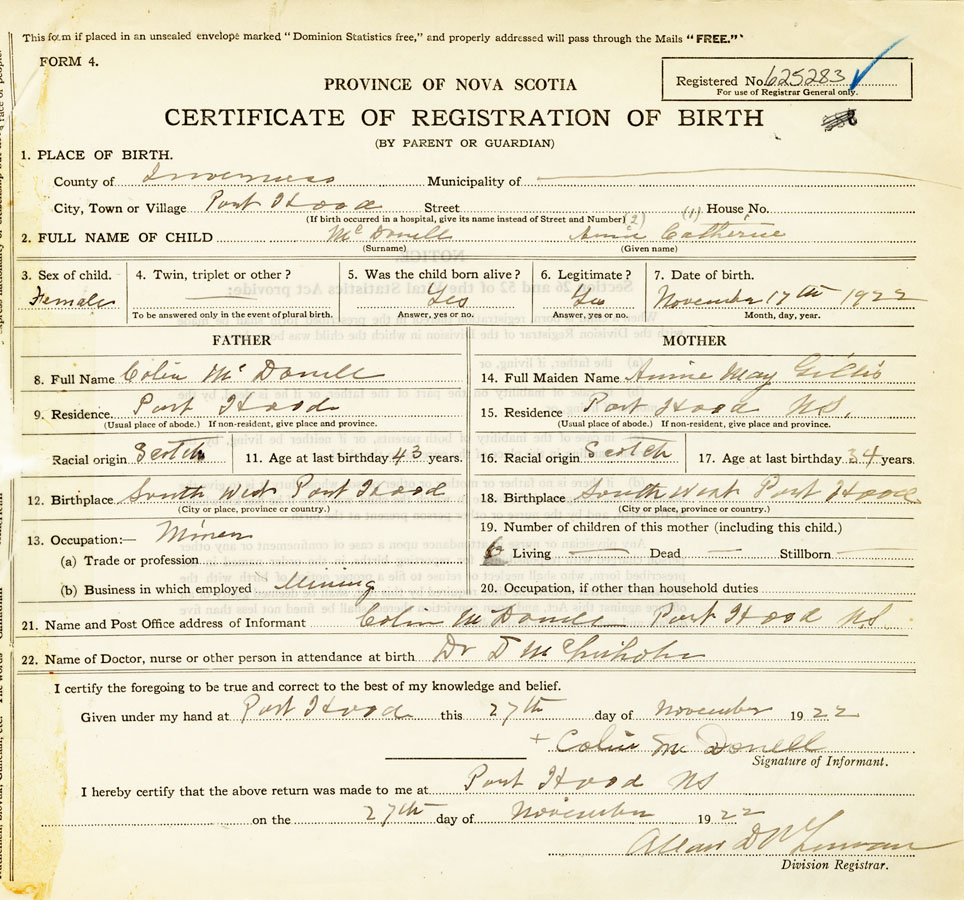 This form if placed in an unsealed envelope marked "Dominion Statistics free," and properly addressed will pass through the Mails "FREE."
FORM 4.
Registered No. 625283
For use of Registrar General only.
PROVINCE OF NOVA SCOTIA
CERTIFICATE OF REGISTRATION OF BIRTH
(BY PARENT OR GUARDIAN)
1. PLACE OF BIRTH.
County of Inverness Municipality of
City, Town or Village Port Hood Street House No.
(If birth occurred in a hospital, give its name instead of Street and Number)
(2) (1)
2. FULL NAME OF CHILD McDonell Annie Catherine
(Surname) (Given name)
3. Sex of child. 4. Twin, triplet or other? 5. Was the child born alive? 6. Legitimate? 7. Date of birth.
Female — Yes Yes November 17th 1922
To be answered only in the event of plural birth. Answer, yes or no. Answer, yes or no. Month, day, year.
FATHER MOTHER
8. Full Name Colin McDonell 14. Full Maiden Name Annie May Gillis
9. Residence. Port Hood 15. Residence Port Hood NS.
(Usual place of abode.) If non-resident, give place and province. (Usual place of abode.) If non-resident, give place and province.
Racial origin Scotch 11. Age at last birthday 43 years. 16. Racial origin Scotch 17. Age at last birthday 34 years.
12. Birthplace South West Port Hood 18. Birthplace South West Port Hood
(City or place, province or country.) (City or place, province or country.)
13. Occupation:— Miner 19. Number of children of this mother (including this child.)
(a) Trade or profession 6 Living — Dead — Stillborn —
(b) Business in which employed Mining 20. Occupation, if other than household duties
21. Name and Post Office address of Informant Colin McDonell Port Hood NS.
22. Name of Doctor, nurse or other person in attendance at birth Dr D McChisholm
I certify the foregoing to be true and correct to the best of my knowledge and belief.
Given under my hand at Port Hood this 27th day of November 1922
+ Colin McDonell
Signature of Informant.
I hereby certify that the above return was made to me at Port Hood NS
on the 27th day of November 1922
Allan D
Division Registrar.